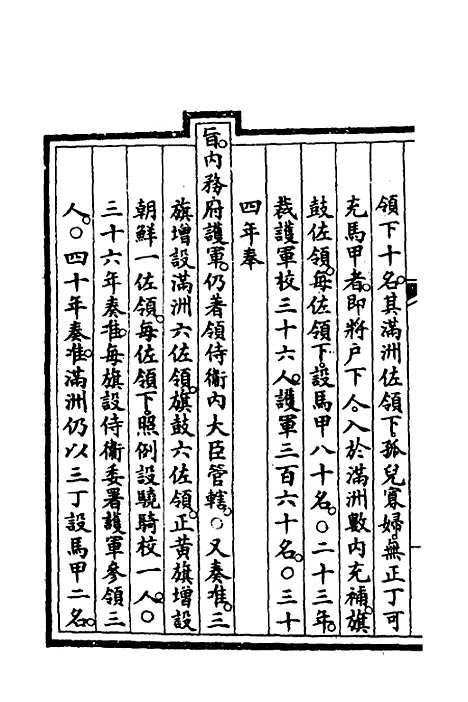 領下十名。其滿洲佐領下。孤兒寡婦。無正丁可
充馬甲者。即將户下人。入於滿洲數內充補。旗
鼓佐領。每佐領下。設馬甲八十名。〇二十三年。
裁護軍校三十六人。護軍三百六十名。〇三十
四年奉
旨。內務府護軍。仍著領侍衛內大臣管轄。〇又奏准。三
旗增設滿洲六佐領。旗鼓六佐領。正黃旗增設
朝鮮一佐領。每佐領下。照例設驍騎校一人。〇
三十六年奏准。每旗設侍衛委署護軍參領三
人。〇四十年奏准。滿洲仍以三丁設馬甲二名。